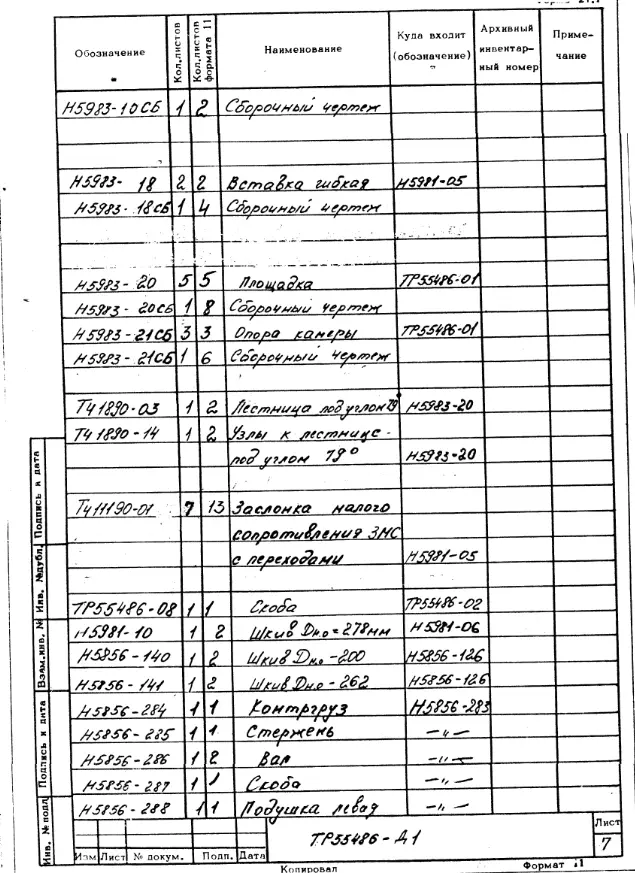 Обозначение Кол.листов Кол.листов формата 11 Наименование Куда входит (обозначение) Архивный инвентарный номер Примечание
Н5983-10СБ 1 2 Сборочный чертеж
Н5983- 18 2 2 Вставка гибкая Н5981-05
Н5983- 18СБ 1 4 Сборочный чертеж
Н5983- 20 5 5 Площадка ТР55486-01
Н5983- 20СБ 1 8 Сборочный чертеж
Н5983-21СБ 3 3 Опора камеры ТР55486-01
Н5983- 21СБ 1 6 Сборочный чертеж
ТЧ1890-03 1 2 Лестница под углом 79 Н5983-20
ТЧ1890-14 1 2 Узлы к лестнице -
под углом 79° Н5983-20
ТЧ11190-01 7 13 Заслонка малого
сопротивления ЗМС
с переходами Н5981-05
ТР55486-08 1 1 Скоба ТР55486-02
Н5981-10 1 2 Шкив Дн.о=278мм Н5981-06
Н5856-140 1 2 Шкив Дн.о-200 Н5856-126
Н5856-141 1 2 Шкив Дн.о-262 Н5856-126
Н5856-284 1 1 Контргруз Н5856-283
Н5856-285 1 1 Стержень —"—
Н5856-286 1 2 Вал —"—
Н5856-287 1 1 Скоба —"—
Н5856-288 1 1 Подушка левая —"—
Инв. № подл Подпись и дата Взам.инв. № Инв. №дубл. Подпись и дата
ТР55486-Д1
Лист
7
Изм Лист № докум. Подп. Дата
Копировал Формат 11